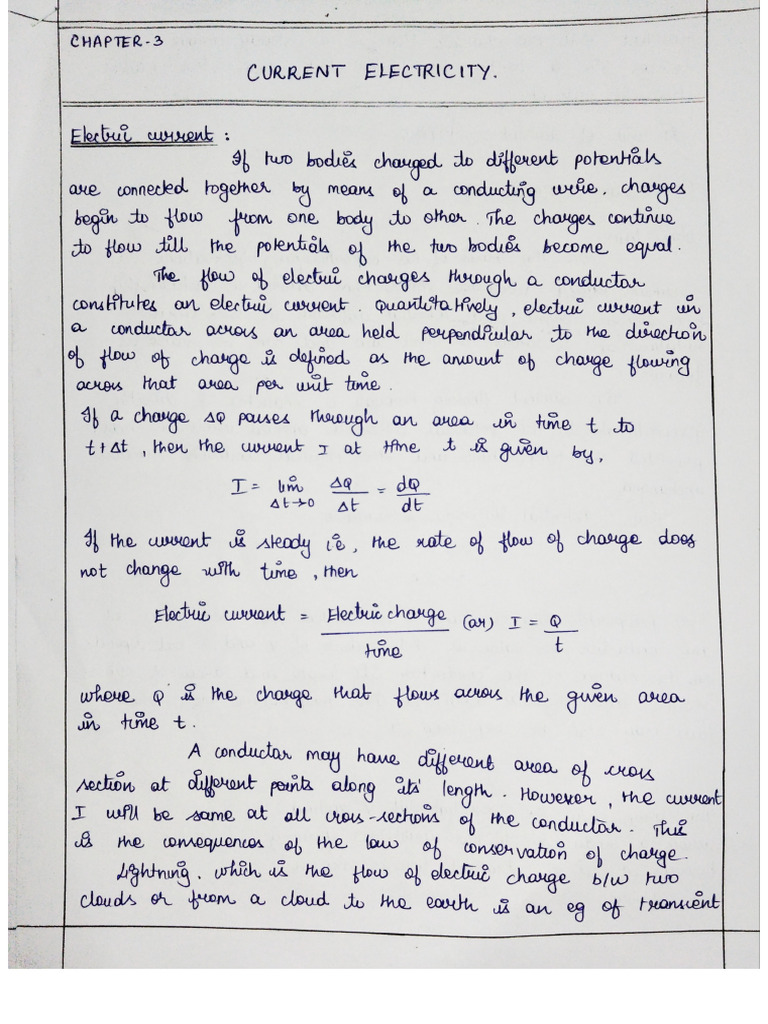 CHAPTER-3
CURRENT ELECTRICITY.
Electric current :
If two bodies charged to different potentials
are connected together by means of a conducting wire. charges
begin to flow from one body to other. The charges continue
to flow till the potentials of the two bodies become equal.
The flow of electric charges through a conductor
constitutes an electric current. Quantitatively, electric current in
a conductor across an area held perpendicular to the direction
of flow of charge is defined as the amount of charge flowing
across that area per unit time.
If a charge ΔQ passes through an area in time t to
t+Δt, then the current I at time t is given by,
I = lim Δt→0 ΔQ/Δt = dQ/dt
If the current is steady ie, the rate of flow of charge does
not change with time, then
Electric current = Electric charge/time (or) I = Q/t
where Q is the charge that flows across the given area
in time t.
A conductor may have different area of cross
section at different points along its' length. However, the current
I will be same at all cross-sections of the conductor. This
is the consequences of the law of conservation of charge.
Lightning. which is the flow of electric charge b/w two
clouds or from a cloud to the earth is an eg of transient